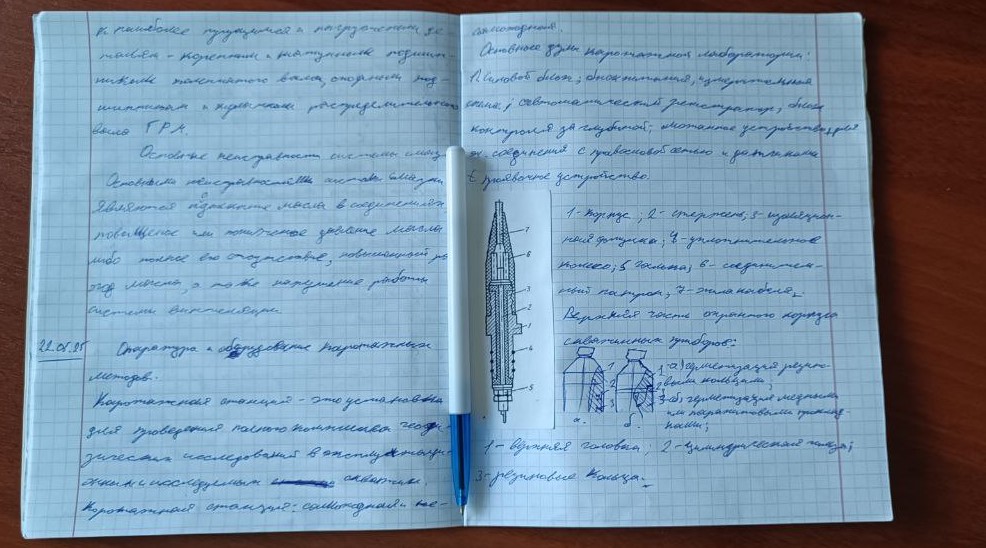 к наиболее трущимся и нагруженным де-
талям - коренным и шатунным подшип-
никам коленчатого вала, опорным под-
шипникам и распределительного
вала ГРМ.
Основные неисправности системы смаз
Основными неисправностями системы смазки
являются масла в соединениях
повышенное или пониженное давление масла
либо полное его отсутствие, повышенный рас
ход масла, а также нарушение работы
системы вентиляции.
22.05.25
Аппаратура и оборудование каротажных
методов.
Каротажная станция - это установка
для проведения полного комплекса геофи-
зических исследований в эксплуатаци-
онных и исследуемых скважинах.
Каротажная станция: самоходная и не-
самоходная.
Основные узлы каротажной лаборатории:
1. Силовой блок; блок питания; измерительная
автоматический регистратор; блок
контроля за глубиной; устройство для
соединений с сетью и датчиками
устройство.
7
6
3
2
1
4
5
1 - корпус; 2 - стержень; 3 - изоляцион-
ная втулка; 4 - уплотнительное
кольцо; 5 гайка; 6 - соединитель-
ный патрон; 7 - жила кабеля.
Верхняя часть охранного корпуса
скважинных приборов:
1
2
3
а.
б.
а) герметизация резино-
выми кольцами;
б) герметизация медными
или паранитовыми проклад-
ками;
1 - верхняя головка; 2 - цилиндрическая гильза;
3 - резиновые кольца.